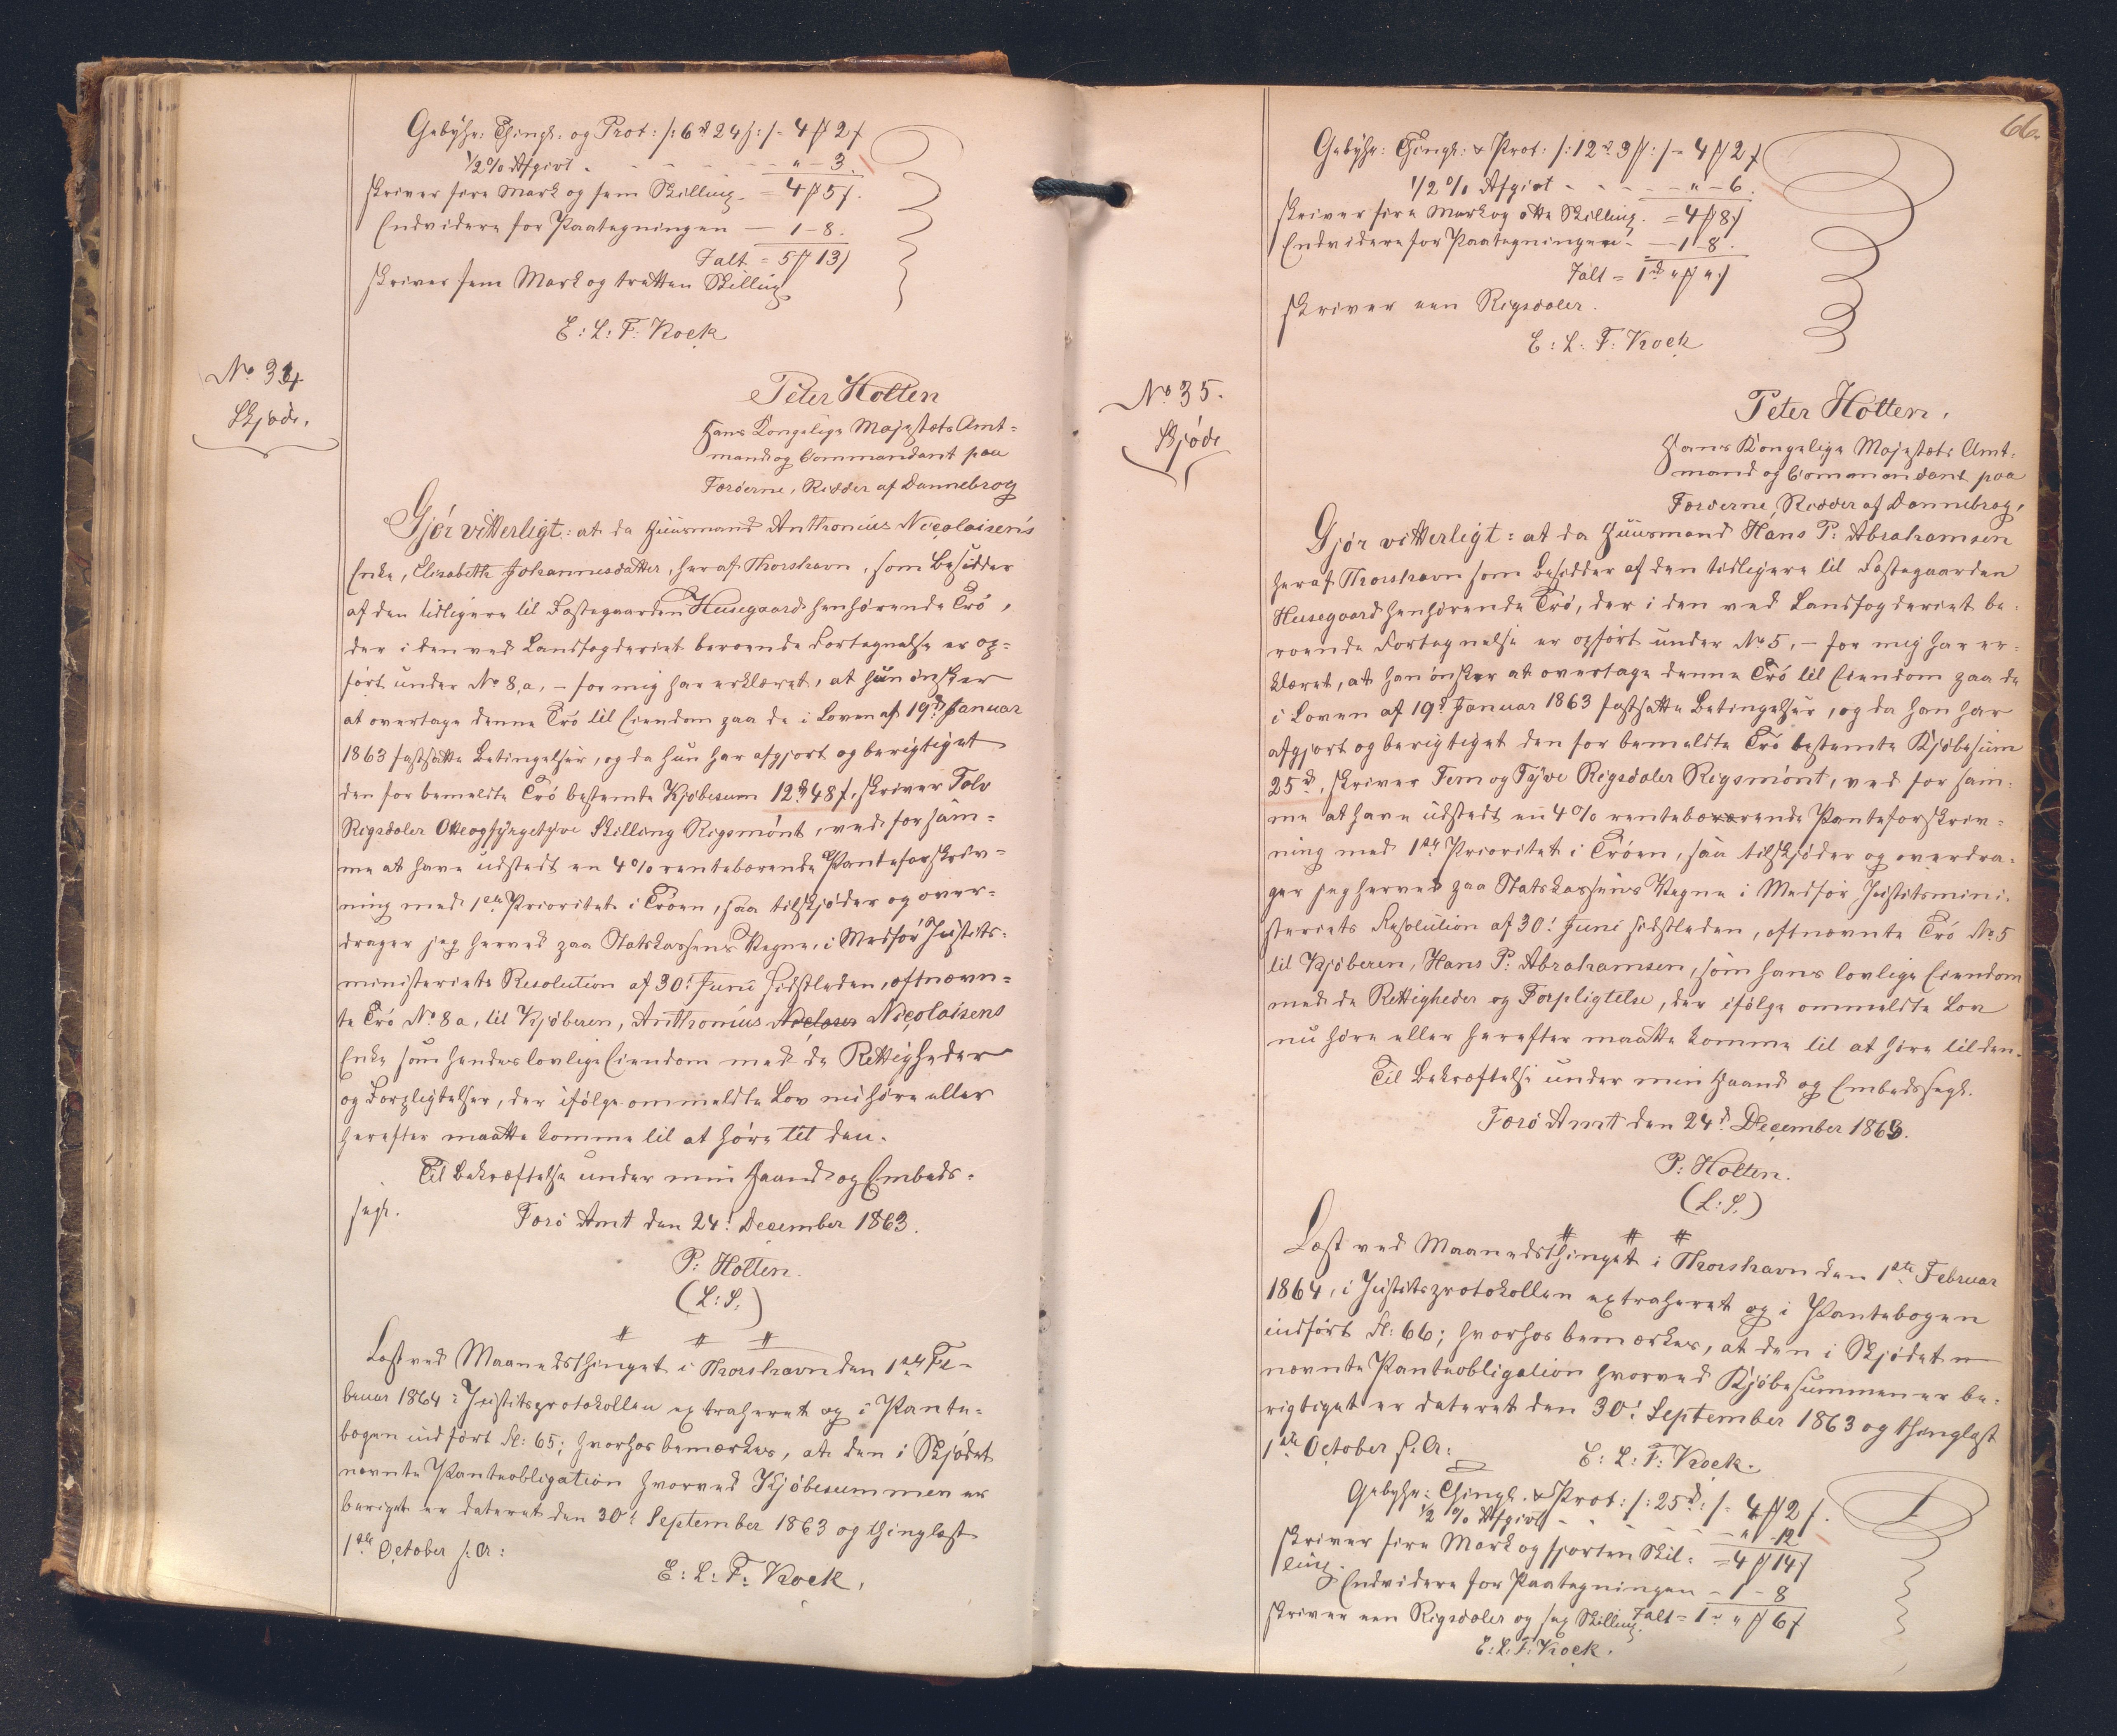 Gebyhr: Thingl. og Prot: /: 6 rd 24 s :/ - 4 mk 2 s
1/2 % Afgivt - - - - - " - 3.
skriver fire Mark og fem Skilling. = 4 mk 5 s.
Endvidere for Paategningen — 1 - 8.
Ialt = 5 mk 13 s
skriver fem Mark og tretten Skilling
E: L: F: Kock
No 34
Skjøde.
Peter Holten
Hans Kongelige Majestæts Amt-
mand og Commandant paa
Færøerne, Ridder af Dannebrog
Gjør vitterligt: at da Huusmand Anthonius Nicolaisens
Enke, Elisabeth Johannesdatter, her af Thorshavn, som Besidder
af den tidligere til Fæstegaarden Husegaard henhørende Trø,
der i den ved Landfogderiet beroende Fortegnelse er op-
ført under No 8, a, - for mig har erklæret, at hun ønsker
at overtage denne Trø til Eiendom paa de i Loven af 19d Januar
1863 fastsatte Betingelser, og da hun har afgjort og berigtiget
den for bemeldte Trø bestemte Kjøbesum 12 rd 48 s, skriver Tolv
Rigsdaler Otteogfyrgetyve Skilling Rigsmønt, ved for sam-
me at have udstedt en 4 % rentebærende Panteforskriv-
ning med 1ste Prioritet i Trøen, saa tilskjøder og over-
drager jeg herved paa Statskassens Vegne, i Medfør Justits-
ministeriets Resolution af 30t Juni sidstleden, oftnævn-
te Trø No 8 a, til Kjøberen, Anthonius Nicolaisens
Enke som hendes lovlige Eiendom med de Rettigheder
og Forpligtelser, der ifølge ommeldte Lov nu høre eller
herefter maatte komme til at høre til den.
Til Bekræftelse under min Haand og Embeds-
segl.
Færø Amt den 24d December 1863.
P: Holten.
(L: S:)
# # #
Læst ved Maanedsthinget i Thorshavn den 1ste Fe-
bruar 1864 i Justitsprotokollen extraheret og i Pante-
bogen indført Fl: 65; hvorhos bemærkes, at den i Skjødet
nævnte Panteobligation hvorved Kjøbesummen er
beriget er dateret den 30t September 1863 og thinglæst
1ste October s: A:
E: L: F: Kock.
66.
Gebyhr: Thingl: & Prot: /: 12 rd 3 mk :/ = 4 mk 2 s
1/2 % Afgivt - - - - " - 6.
skriver fire Mark og otte Skilling. = 4 mk 8 s
Endvidere for Paategningen - — 1 8.
Ialt = 1 rd " mk " s
skriver een Rigsdaler.
E: L: F: Kock
No 35.
Skjøde
Peter Holten.
Hans Kongelige Majestæts Amt-
mand og Commandant paa
Færøerne, Ridder af Dannebrog,
Gjør vitterligt: at da Huusmand Hans P: Abrahamsen
her af Thorshavn som Besidder af den tidligere til Fæstegaarden
Husegaard henhørende Trø, der i den ved Landfogderiet be-
roende Fortegnelse er opført under No 5, - for mig har er-
klæret, at han ønsker at overtage denne Trø til Eiendom paa de
i Loven af 19d Januar 1863 fastsatte Betingelser, og da han har
afgjort og berigtiget den for bemeldte Trø bestemte Kjøbesum
25 rd, skriver Fem og Tyve Rigsdaler Rigsmønt, ved for sam-
me at have udstedt en 4 % rentebærende Panteforskriv-
ning med 1ste Prioritet i Trøen, saa tilskjøder og overdra-
ger jeg herved paa Statskassens Vegne i Medfør Justitsmini-
steriets Resolution af 30t Juni sidstleden, oftnævnte Trø No 5
til Kjøberen, Hans P: Abrahamsen, som hans lovlige Eiendom
med de Rettigheder og Forpligtelse, der ifølge ommeldte Lov
nu høre eller herefter maatte komme til at høre til den.
Til Bekræftelse under min Haand og Embedssegl.
Færø Amt den 24d December 1863.
P: Holten.
(L: S:)
# # #
Læst ved Maanedsthinget i Thorshavn den 1ste Februar
1864, i Justitsprotokollen extraheret og i Pantebogen
indført Fl: 66; hvorhos bemærkes, at den i Skjødet
nævnte Panteobligation hvorved Kjøbesummen er be-
rigtiget er dateret den 30t September 1863 og thinglæst
1ste October s: A:
E: L: F: Kock.
Gebyhr: Thingl. & Prot: /: 25 rd :/ - 4 mk 2 s.
1/2 % Afgivt - - - - - " - 12
skriver fire Mark og fjorten Skil- = 4 mk 14 s
ling.
Endvidere for Paategningen - 1 - 8
skriver een Rigsdaler og sex Skilling. Ialt = 1 rd " mk 6 s
E: L: F: Kock.